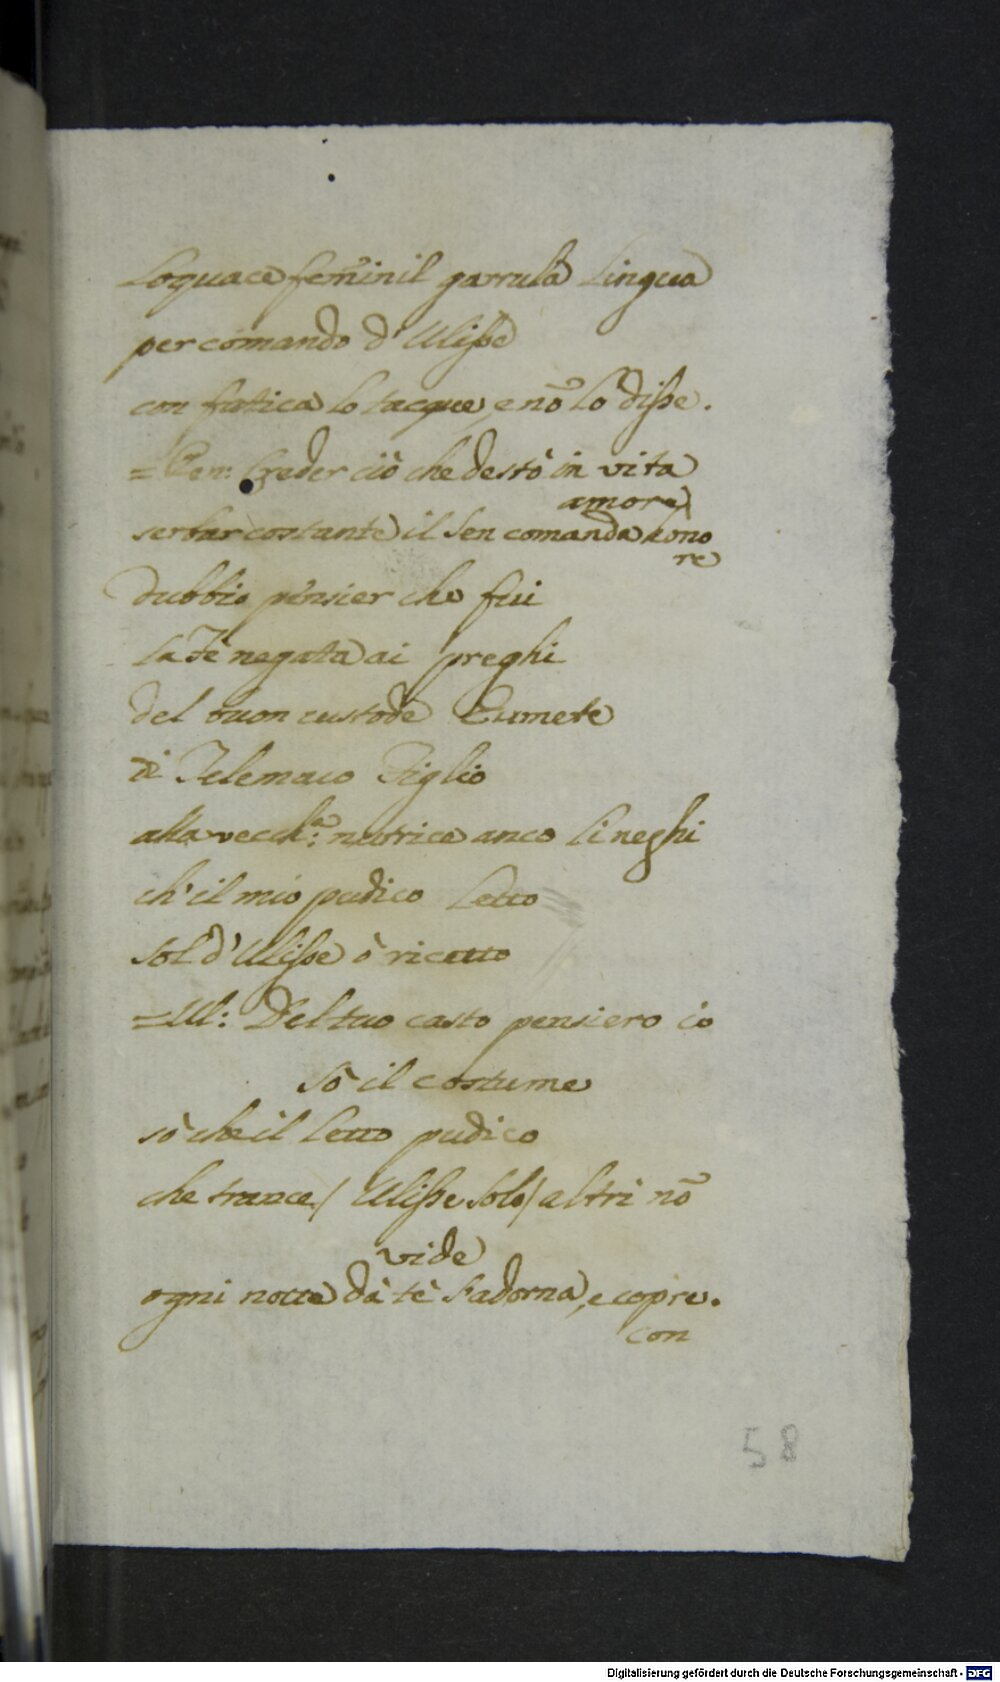 Loquace fem̃inil garrula Lingua
per comando d'Ulisse
con fatica lo tacque, e nõ lo disse.
=Pen: Creder ciò che destò in vita
amore
serbar costante il sen comanda hono
re
dubbio pensier che fui
la Fè negata ai preghi
del buon custode Eumete
di Telemaco Figlio
alla vecch:ª nutrice anco li neghi
ch'il mio pudico Letto
sol d'Ulisse ò ricetto
=Ul: Del tuo casto pensiero io
sò il costume
sò che il letto pudico
che trance / Ulisse solo / altri nõ
vide
ogni notte dà tè s'adorna, e copre.
con
58
Digitalisierung gefördert durch die Deutsche Forschungsgemeinschaft - DFG